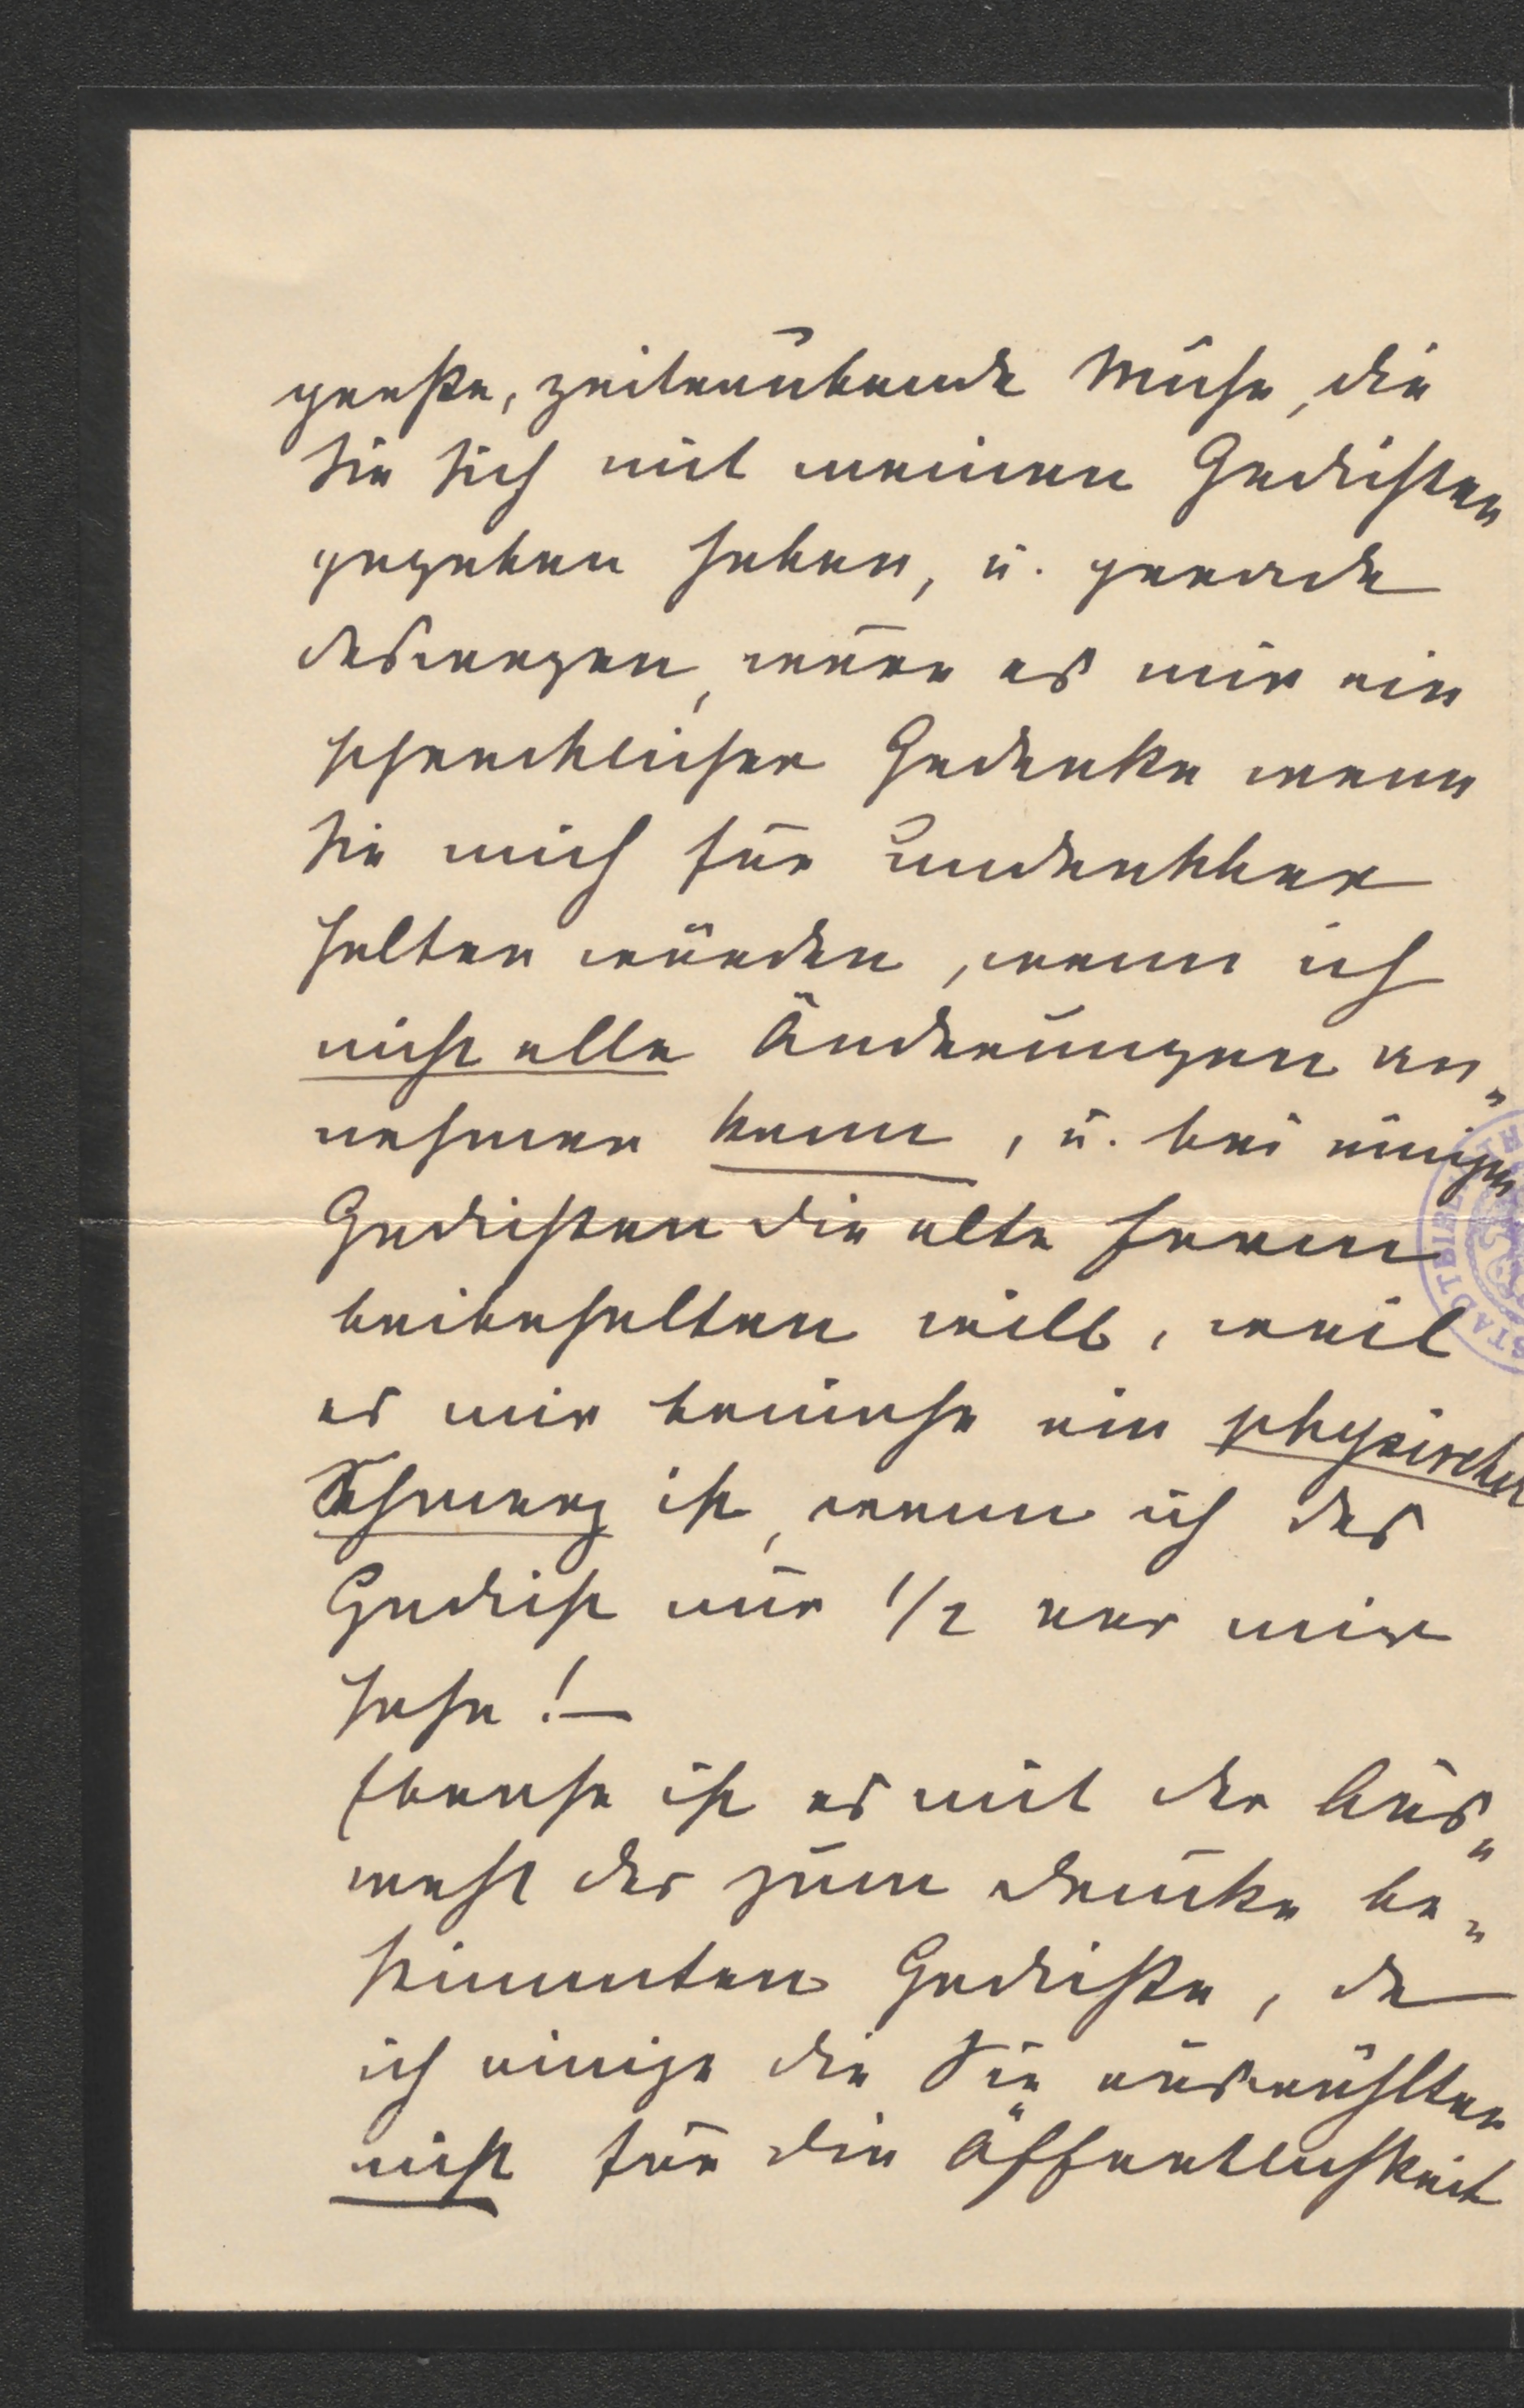 große, zeitraubende Mühe, die
Sie sich mit meinen Gedichten
gegeben haben, u. gerade
deswegen, wäre es mir ein
schrecklicher Gedanke wenn
Sie mich für undankbar
halten würden, wenn ich
nicht alle Änderungen an„
nehmen kann, u. bei einigen
Gedichten die alte Form
beibehalten will, weil
es mir beinahe ein physischer
Schmerz ist, wenn ich das
Gedicht nur 1/2 vor mir
sehe! —
Ebenso ist es mit der Aus„
wahl der zum Drucke be„
stimmten Gedichte, da
ich einige die Sie auswählten
nicht für die Öffentlichkeit